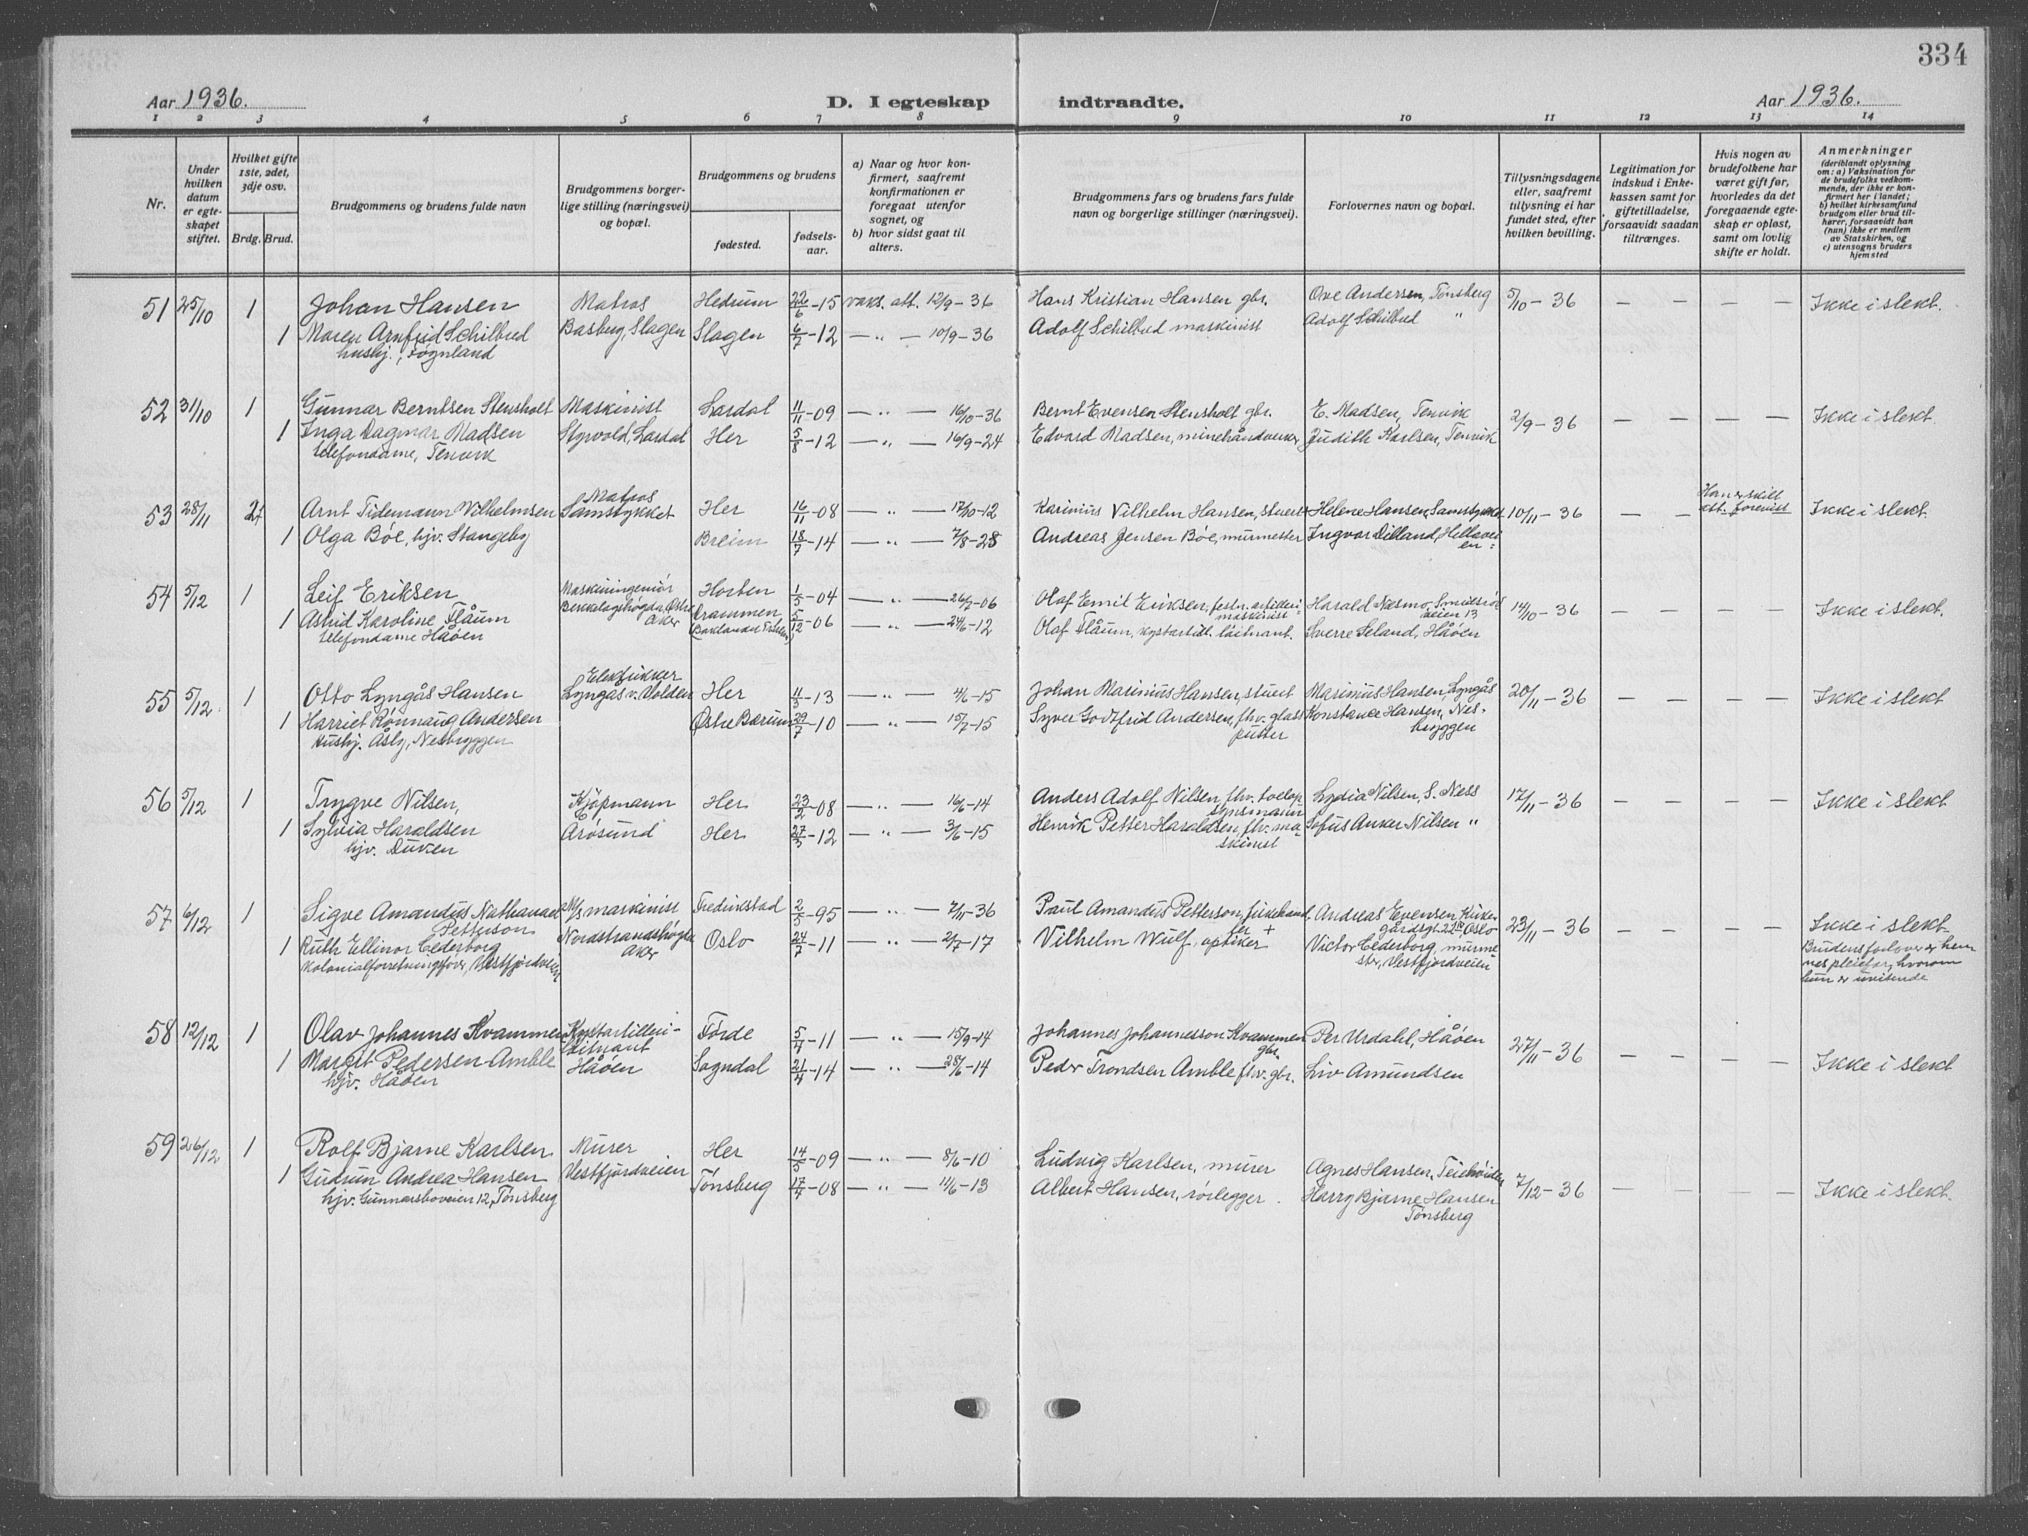 334
Aar 1936.
D. I egteskap indtraadte.
Aar 1936.
1 2 3 4 5 6 7 8 9 10 11 12 13 14
Nr.
Under hvilken datum er egteskapet stiftet.
Hvilket gifte 1ste, 2det, 3dje osv.
Brdg. Brud.
Brudgommens og brudens fulde navn
Brudgommens borgerlige stilling (næringsvei) og bopæl.
Brudgommens og brudens
fødested.
fødselsaar.
a) Naar og hvor konfirmert, saafremt konfirmationen er foregaat utenfor sognet, og
b) hvor sidst gaat til alters.
Brudgommens fars og brudens fars fulde navn og borgerlige stillinger (næringsvei).
Forlovernes navn og bopæl.
Tillysningsdagene eller, saafremt tillysning ei har fundet sted, efter hvilken bevilling.
Legitimation for indskud i Enkekassen samt for giftetilladelse, forsaavidt saadan tiltrænges.
Hvis nogen av brudefolkene har været gift før, hvorledes da det foregaaende egteskap er opløst, samt om lovlig skifte er holdt.
Anmerkninger
(deriblandt oplysning om: a) Vaksination for de brudefolks vedkommende, der ikke er konfirmert her i landet;
b) hvilket kirkesamfund brudgom eller brud tilhører, forsaavidt han (hun) ikke er medlem av Statskirken, og
c) utensogns bruders hjemsted
51 25/10 1 Johan Hansen Matros Hedrum 22/6-15 vaks. att. 12/9-36 Hans Kristian Hansen gbr. Ove Andersen, Tønsberg 5/10-36 — — — Ikke i slekt.
1 Maren Arnfrid Schilbred Basberg, Slagen Slagen 6/7-12 — " — 10/9-36 Adolf Schilbred maskinist Adolf Schilbred "
husbj., Tøgnland
52 31/10 1 Gunnar Berntsen Stensholt Maskinist Lardal 11/11-09 — " — 16/10-36 Bernt Evensen Stensholt gbr. E. Madsen, Tenvik 2/9-36 — — — Ikke i slekt.
1 Inga Dagmar Madsen Styrvold, Lardal Her 5/8-12 — " — 16/9-24 Edvard Madsen, minehåndverker Judith Karlsen, Tenvik
telefondame, Tenvik
53 28/11 2 Arnt Tidemann Vilhelmsen Matros Samstykket Her 16/11-08 — " — 17/10-12 Karinius Vilhelm Hansen, stuert Helene Hansen, Samstykket 10/11-36 — — Han er skilt att. forevist Ikke i slekt.
1 Olga Bøe, hjv. Stangeby Breim 18/7-14 — " — 7/8-28 Andreas Jensen Bøe, murmester Ingvar Dilland, Hellaveien
54 5/12 1 Leif Eriksen Maskiningeniør Horten 1/5-04 — " — 26/7-06 Olaf Emil Eriksen, festn. artilleri-maskinist Harald Nesmo, Smidsrødveien 13 14/10-36 — — — Ikke i slekt.
1 Astrid Karoline Flåum Bekkelagshøgda, Østre Aker Drammen 5/12-06 — " — 24/6-12 Olaf Flåum, kystartill. løitnant. Sverre Seland, Håøen
telefondame Håøen
55 5/12 1 Otto Lyngås Hansen Elektriker Her 11/3-13 — " — 4/6-15 Johan Marinius Hansen, stuert Marinius Hansen, Lyngås 20/11-36 — — — Ikke i slekt
1 Harriet Rønnaug Andersen Lyngås v. Volden Østre Bærum 29/7-10 — " — 15/7-15 Syver Godtfrid Andersen, fhv. glasspuster Konstance Hansen, Nesbryggen
husbj. Åsly, Nesbryggen
56 5/12 1 Trygve Nilsen, Kjøpmann Her 23/2-08 — " — 16/6-14 Anders Adolf Nilsen, fhv. toelopsynsmann Lydia Nilsen, S. Ness 17/11-36 — — — Ikke i slekt
1 Sylvia Haraldsen Arøsund Her 27/3-12 — " — 3/6-15 Henrik Petter Haraldsen, fhv. maskinist Sofus Anker Nilsen "
hjv. Duken
57 6/12 1 Sigve Amandus Nathanael Petterson M/s maskinist Fredrikstad 2/5-95 — " — 7/11-36 Paul Amandus Petterson, fiskehandler + Andreas Evensen Kirkegårdsgt. 22 Oslo 23/11-36 — — — Ikke i slekt.
1 Ruth Ellinor Cederborg Nordstrandshøgda Aker Oslo 24/7-11 — " — 2/7-17 Vilhelm Wulf, optiker Victor Cederborg, murmester, Vestfjordveien Brudens forlover er hennes pleiefar, hvorom hun er uvitende
Kolonialforretningsfører, Vestfjordveien
58 12/12 1 Olav Johannes Kvammen Kystartilleri-løitnant Førde 5/4-11 — " — 15/9-14 Johannes Johannesson Kvammen gbr. Per Urdahl, Håøen 27/11-36 — — — Ikke i slekt
1 Margit Pedersen Amble Håøen Sogndal 21/4-14 — " — 28/6-14 Peder Trondsen Amble fhv. gbr. Liv Amundsen
hjv. Håøen
59 26/12 1 Rolf Bjarne Karlsen Murer Her 14/5-09 — " — 8/6-10 Ludvig Karlsen, murer Agnes Hansen, Teiehøiden 7/12-36 — — — Ikke i slekt.
1 Gudrun Andrea Hansen Vestfjordveien Tønsberg 17/4-08 — " — 11/6-13 Albert Hansen, rørlegger. Harry Bjarne Hansen Tønsberg
hjv. Gunnarsboveien 12, Tønsberg